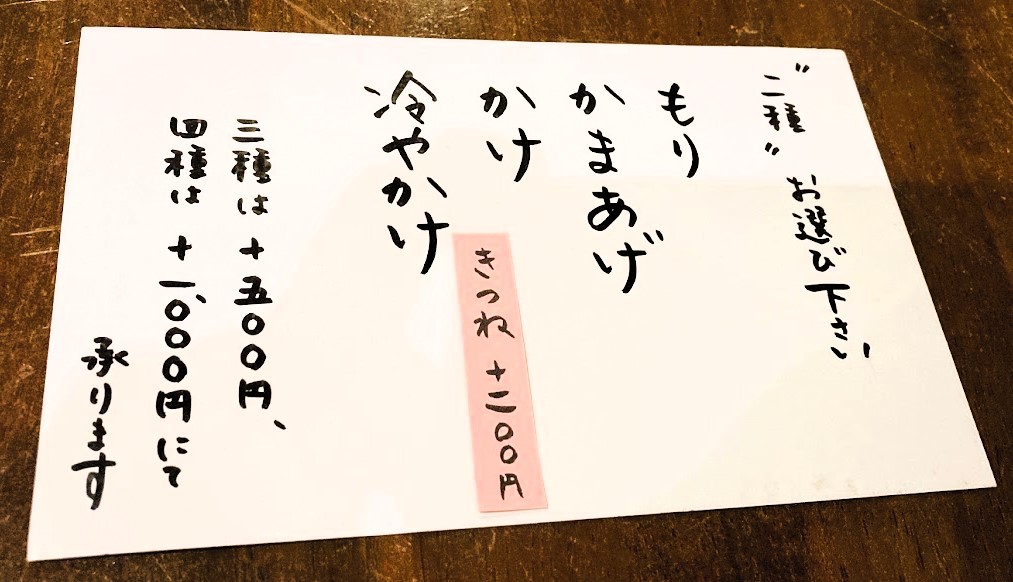 〝二種〟お選び下さい
もり
かまあげ
かけ
きつね +二〇〇円
冷やかけ
三種は +五〇〇円、
四種は +一、〇〇〇円にて
承ります